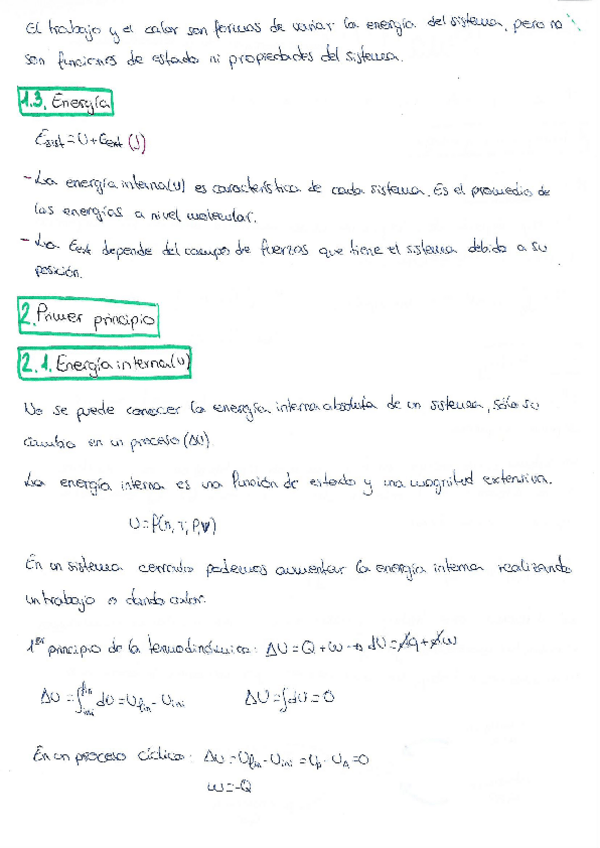 El trabajo y el calor son formas de variar la energía del sistema, pero no
son funciones de estado ni propiedades del sistema.
1.3. Energía
Esist = U + Eext (J)
- La energía interna (U) es característica de cada sistema. Es el promedio de
las energías a nivel molecular.
- La Eext depende del campo de fuerzas que tiene el sistema debido a su
posición.
2. Primer principio
2.1. Energía interna (U)
No se puede conocer la energía interna absoluta de un sistema, sólo su
cambio en un proceso (ΔU).
La energía interna es una función de estado y una magnitud extensiva.
U = f(n, T, P, V)
En un sistema cerrado podemos aumentar la energía interna realizando
un trabajo o dando calor.
1er principio de la termodinámica: ΔU = Q + W → dU = đq + đw
ΔU = ∫ini fin dU = Ufin - Uini ΔU = ∫dU = 0
En un proceso cíclico: ΔU = Ufin - Uini = UA - UA = 0
W = -Q